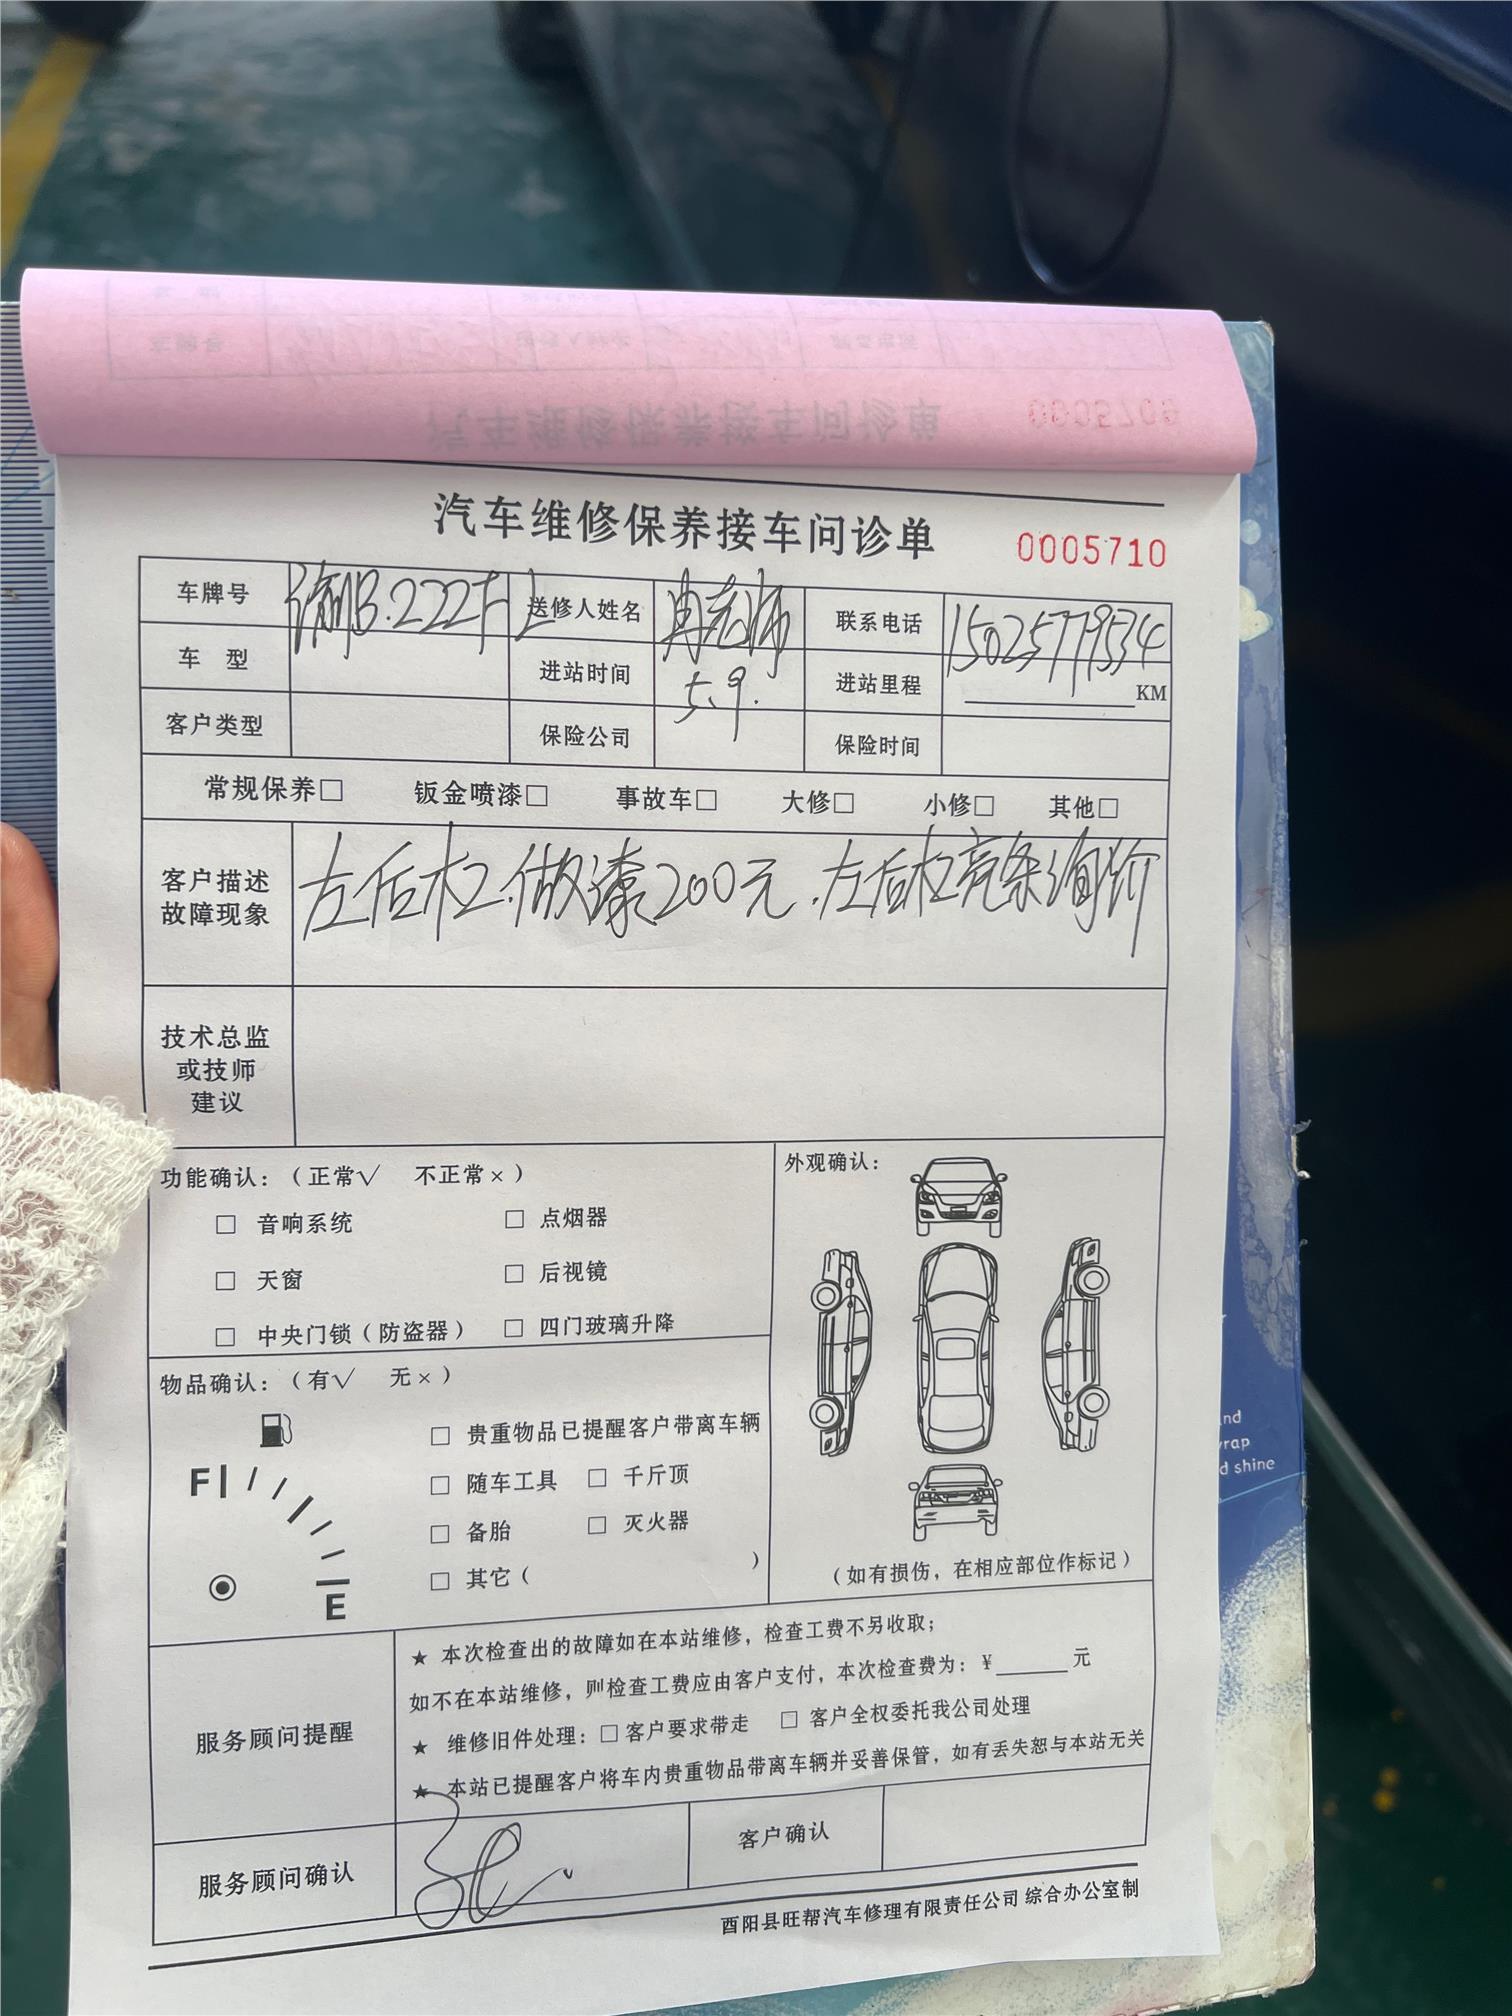 汽车维修保养接车问诊单 0005710
车牌号 渝B.222F 送修人姓名 冉老师 联系电话 15025779534
车 型 进站时间 5.9. 进站里程 KM
客户类型 保险公司 保险时间
常规保养□ 钣金喷漆□ 事故车□ 大修□ 小修□ 其他□
客户描述
故障现象
左后杠.做漆200元.左后杠亮条询价
技术总监
或技师
建议
功能确认：（正常√ 不正常×）
□ 音响系统 □ 点烟器
□ 天窗 □ 后视镜
□ 中央门锁（防盗器） □ 四门玻璃升降
外观确认：
（如有损伤，在相应部位作标记）
物品确认：（有√ 无×）
F
E
□ 贵重物品已提醒客户带离车辆
□ 随车工具 □ 千斤顶
□ 备胎 □ 灭火器
□ 其它（ ）
服务顾问提醒
★ 本次检查出的故障如在本站维修，检查工费不另收取；
如不在本站维修，则检查工费应由客户支付，本次检查费为：¥______元
★ 维修旧件处理：□客户要求带走 □ 客户全权委托我公司处理
★ 本站已提醒客户将车内贵重物品带离车辆并妥善保管，如有丢失恕与本站无关
服务顾问确认 客户确认
酉阳县旺帮汽车修理有限责任公司 综合办公室制
nd
wrap
d shine